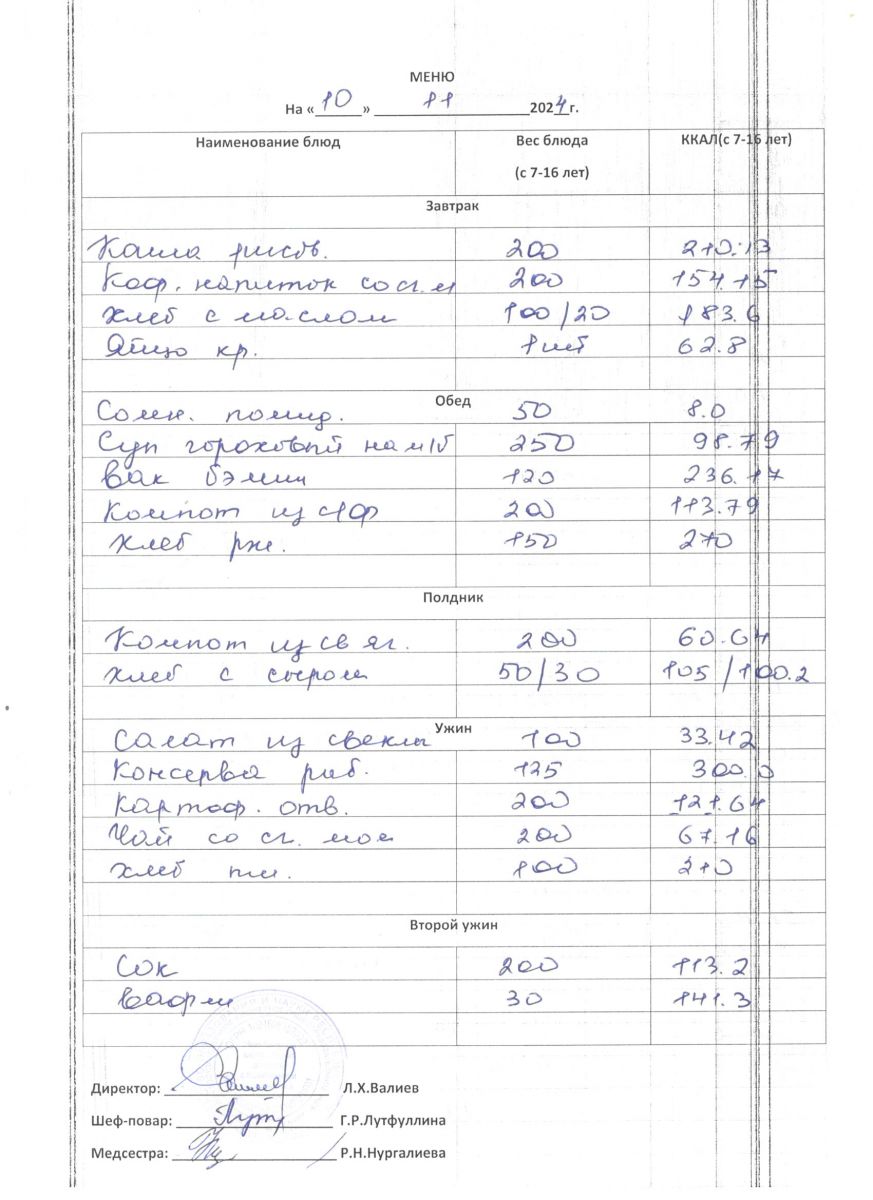 МЕНЮ
На «10» 11 2024 г.
Наименование блюд Вес блюда (с 7-16 лет) ККАЛ(с 7-16 лет)
Завтрак
Каша рисов. 200 210.13
Коф. напиток со сг. м 200 154.15
Хлеб с маслом 100/20 183.6
Яйцо кр. 1 шт 62.8
Обед
Солен. помид. 50 8.0
Суп гороховый на м/б 250 98.79
Вак бэлиш 120 236.17
Компот из с/ф 200 113.79
Хлеб рж. 150 270
Полдник
Компот из св яг. 200 60.64
Хлеб с сыром 50/30 105/100.2
Ужин
Салат из свеклы 100 33.42
Консерва рыб. 125 300.0
Картоф. отв. 200 121.64
Чай со сг. мол 200 67.16
Хлеб пш. 100 210
Второй ужин
Сок 200 113.2
Вафли 30 141.3
Директор: Л.Х.Валиев
Шеф-повар: Г.Р.Лутфуллина
Медсестра: Р.Н.Нургалиева